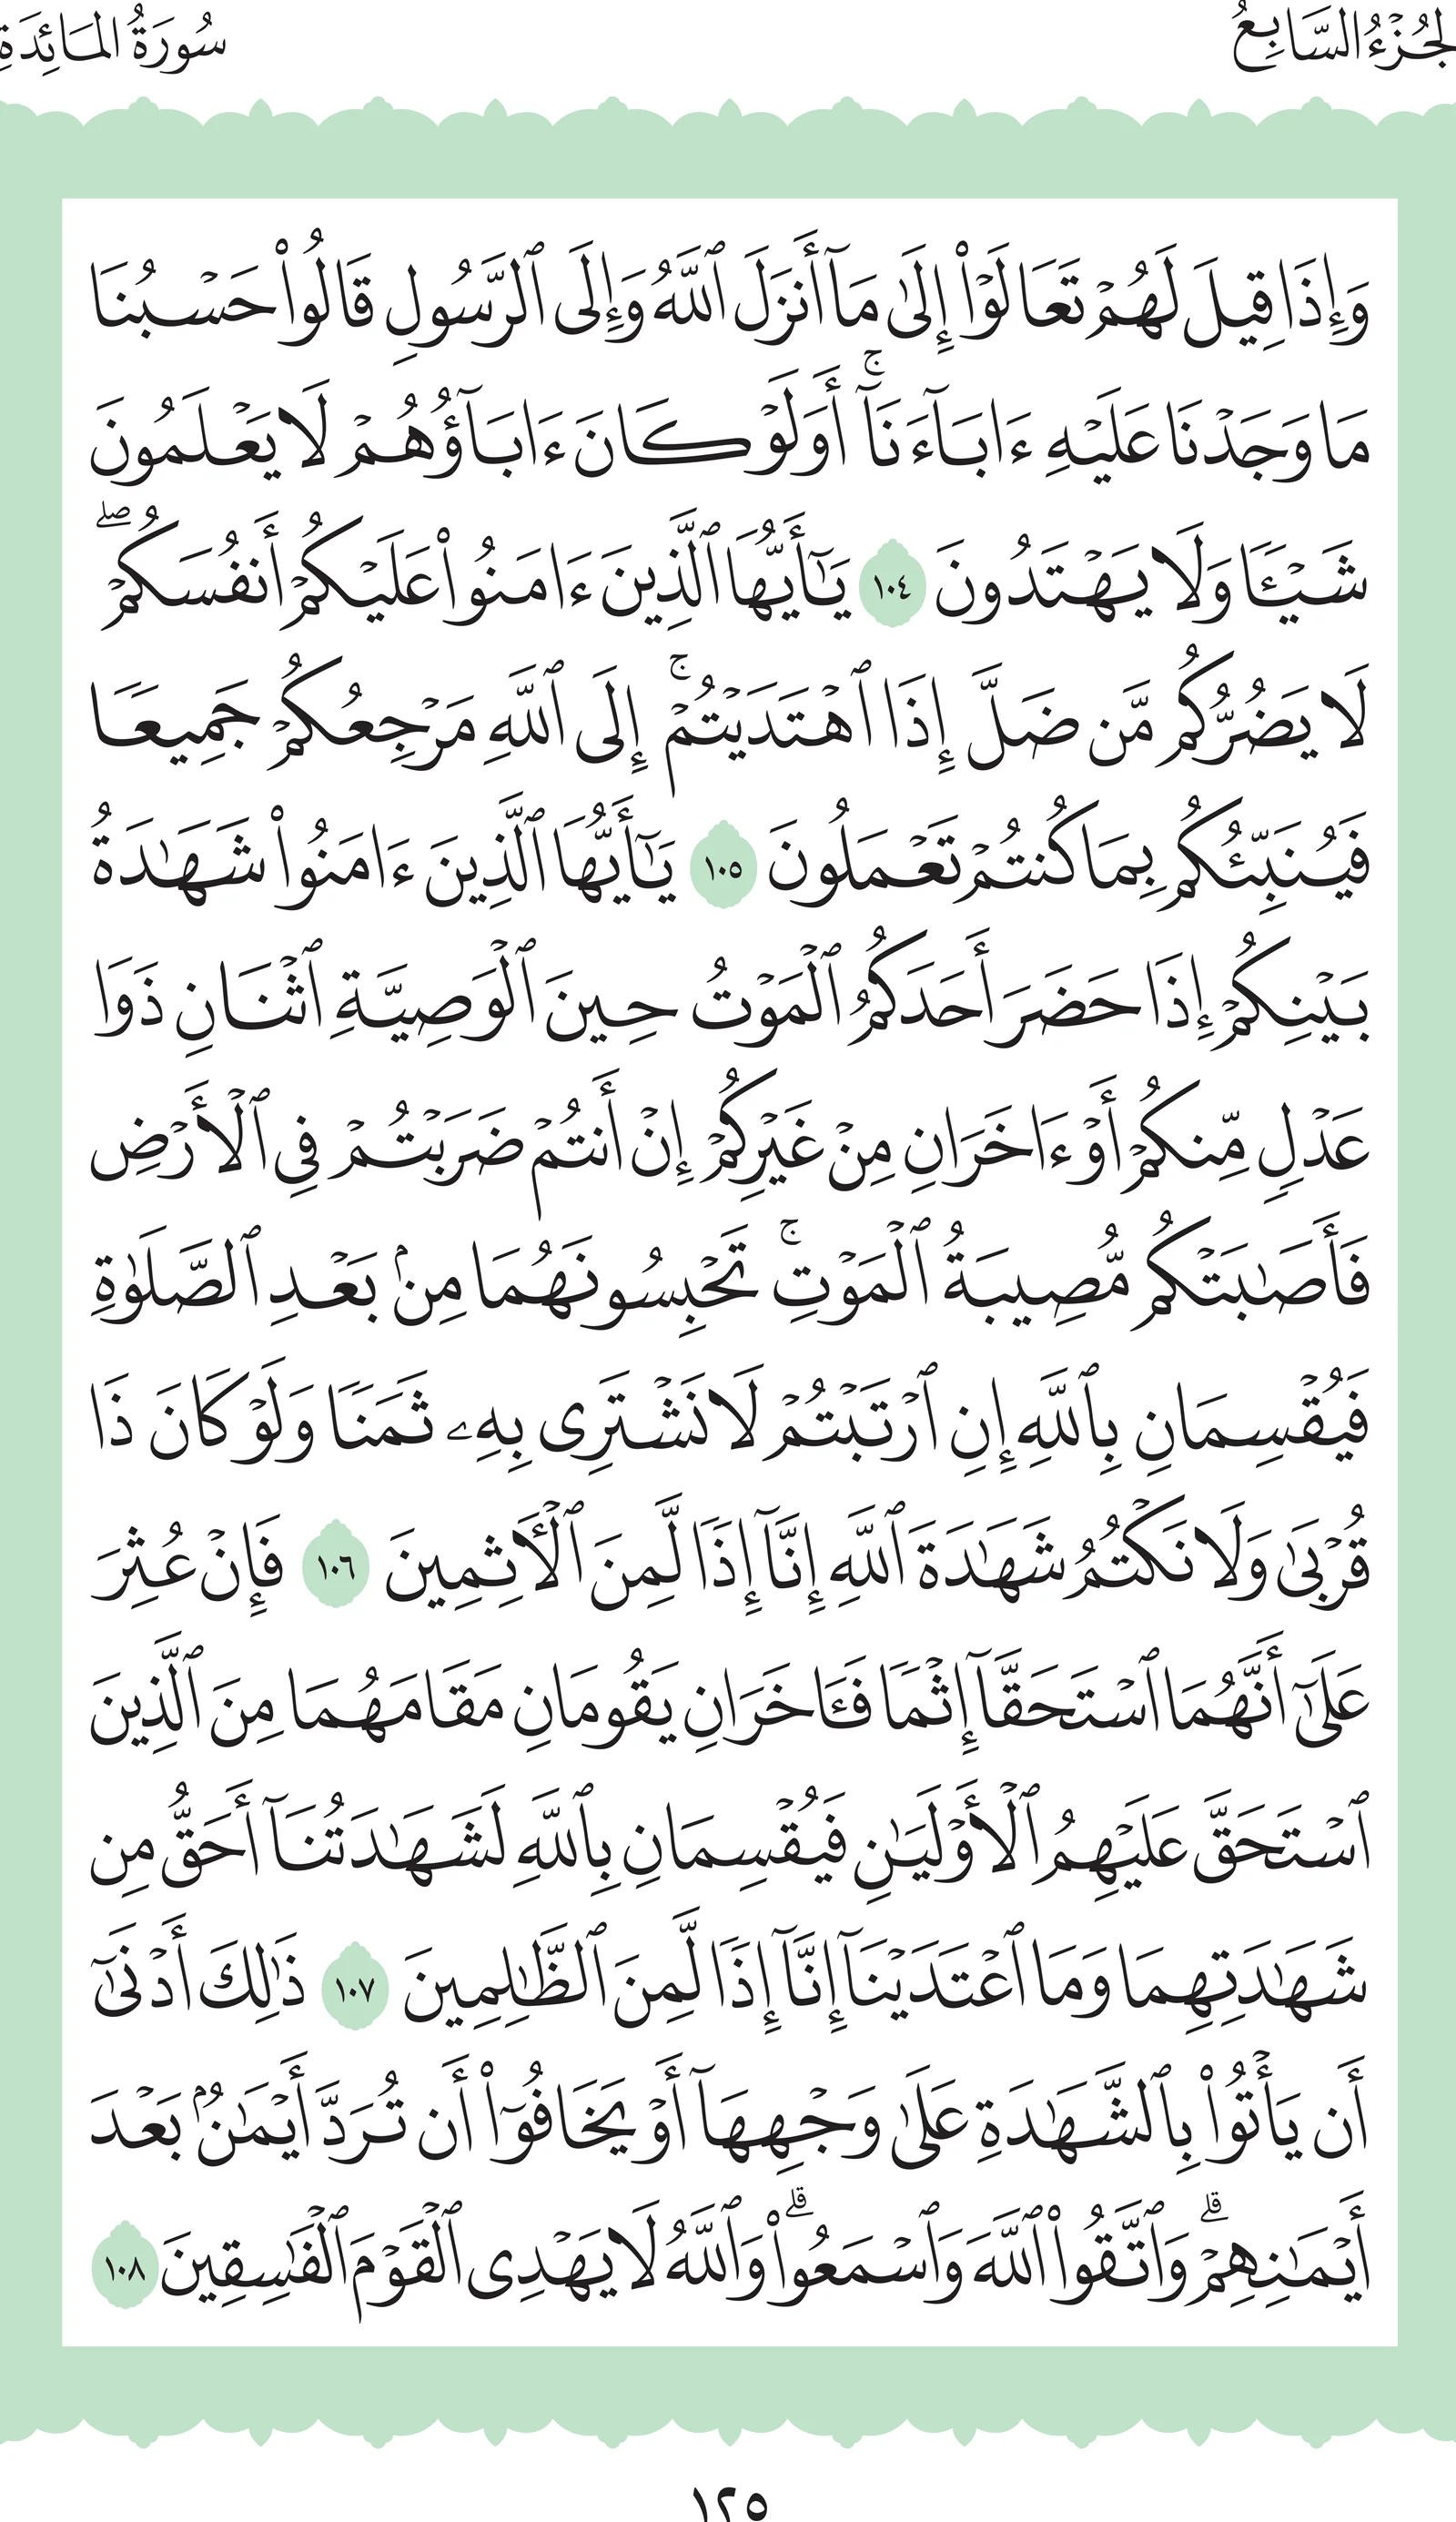 الجُزْءُ السَّابِعُ سُورَةُ المَائِدَةِ
وَإِذَا قِيلَ لَهُمْ تَعَالَوْا۟ إِلَىٰ مَآ أَنزَلَ ٱللَّهُ وَإِلَى ٱلرَّسُولِ قَالُوا۟ حَسْبُنَا
مَا وَجَدْنَا عَلَيْهِ ءَابَآءَنَآ ۚ أَوَلَوْ كَانَ ءَابَآؤُهُمْ لَا يَعْلَمُونَ
شَيْـًٔا وَلَا يَهْتَدُونَ ١٠٤ يَـٰٓأَيُّهَا ٱلَّذِينَ ءَامَنُوا۟ عَلَيْكُمْ أَنفُسَكُمْ ۖ
لَا يَضُرُّكُم مَّن ضَلَّ إِذَا ٱهْتَدَيْتُمْ ۚ إِلَى ٱللَّهِ مَرْجِعُكُمْ جَمِيعًا
فَيُنَبِّئُكُم بِمَا كُنتُمْ تَعْمَلُونَ ١٠٥ يَـٰٓأَيُّهَا ٱلَّذِينَ ءَامَنُوا۟ شَهَـٰدَةُ
بَيْنِكُمْ إِذَا حَضَرَ أَحَدَكُمُ ٱلْمَوْتُ حِينَ ٱلْوَصِيَّةِ ٱثْنَانِ ذَوَا
عَدْلٍ مِّنكُمْ أَوْ ءَاخَرَانِ مِنْ غَيْرِكُمْ إِنْ أَنتُمْ ضَرَبْتُمْ فِى ٱلْأَرْضِ
فَأَصَـٰبَتْكُم مُّصِيبَةُ ٱلْمَوْتِ ۚ تَحْبِسُونَهُمَا مِنۢ بَعْدِ ٱلصَّلَوٰةِ
فَيُقْسِمَانِ بِٱللَّهِ إِنِ ٱرْتَبْتُمْ لَا نَشْتَرِى بِهِۦ ثَمَنًا وَلَوْ كَانَ ذَا
قُرْبَىٰ وَلَا نَكْتُمُ شَهَـٰدَةَ ٱللَّهِ إِنَّآ إِذًا لَّمِنَ ٱلْـَٔاثِمِينَ ١٠٦ فَإِنْ عُثِرَ
عَلَىٰٓ أَنَّهُمَا ٱسْتَحَقَّآ إِثْمًا فَـَٔاخَرَانِ يَقُومَانِ مَقَامَهُمَا مِنَ ٱلَّذِينَ
ٱسْتَحَقَّ عَلَيْهِمُ ٱلْأَوْلَيَـٰنِ فَيُقْسِمَانِ بِٱللَّهِ لَشَهَـٰدَتُنَآ أَحَقُّ مِن
شَهَـٰدَتِهِمَا وَمَا ٱعْتَدَيْنَآ إِنَّآ إِذًا لَّمِنَ ٱلظَّـٰلِمِينَ ١٠٧ ذَٰلِكَ أَدْنَىٰٓ
أَن يَأْتُوا۟ بِٱلشَّهَـٰدَةِ عَلَىٰ وَجْهِهَآ أَوْ يَخَافُوٓا۟ أَن تُرَدَّ أَيْمَـٰنٌۢ بَعْدَ
أَيْمَـٰنِهِمْ ۗ وَٱتَّقُوا۟ ٱللَّهَ وَٱسْمَعُوا۟ ۗ وَٱللَّهُ لَا يَهْدِى ٱلْقَوْمَ ٱلْفَـٰسِقِينَ ١٠٨
١٢٥